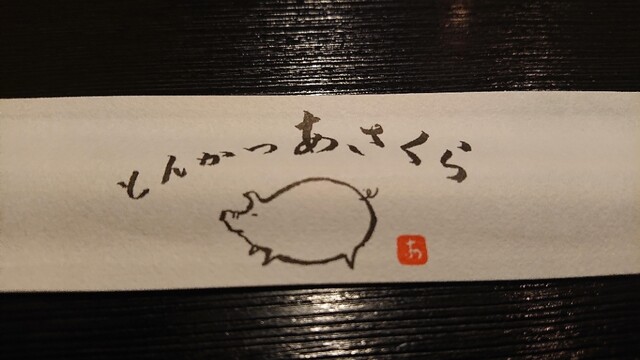 とんかつあさくら
あ